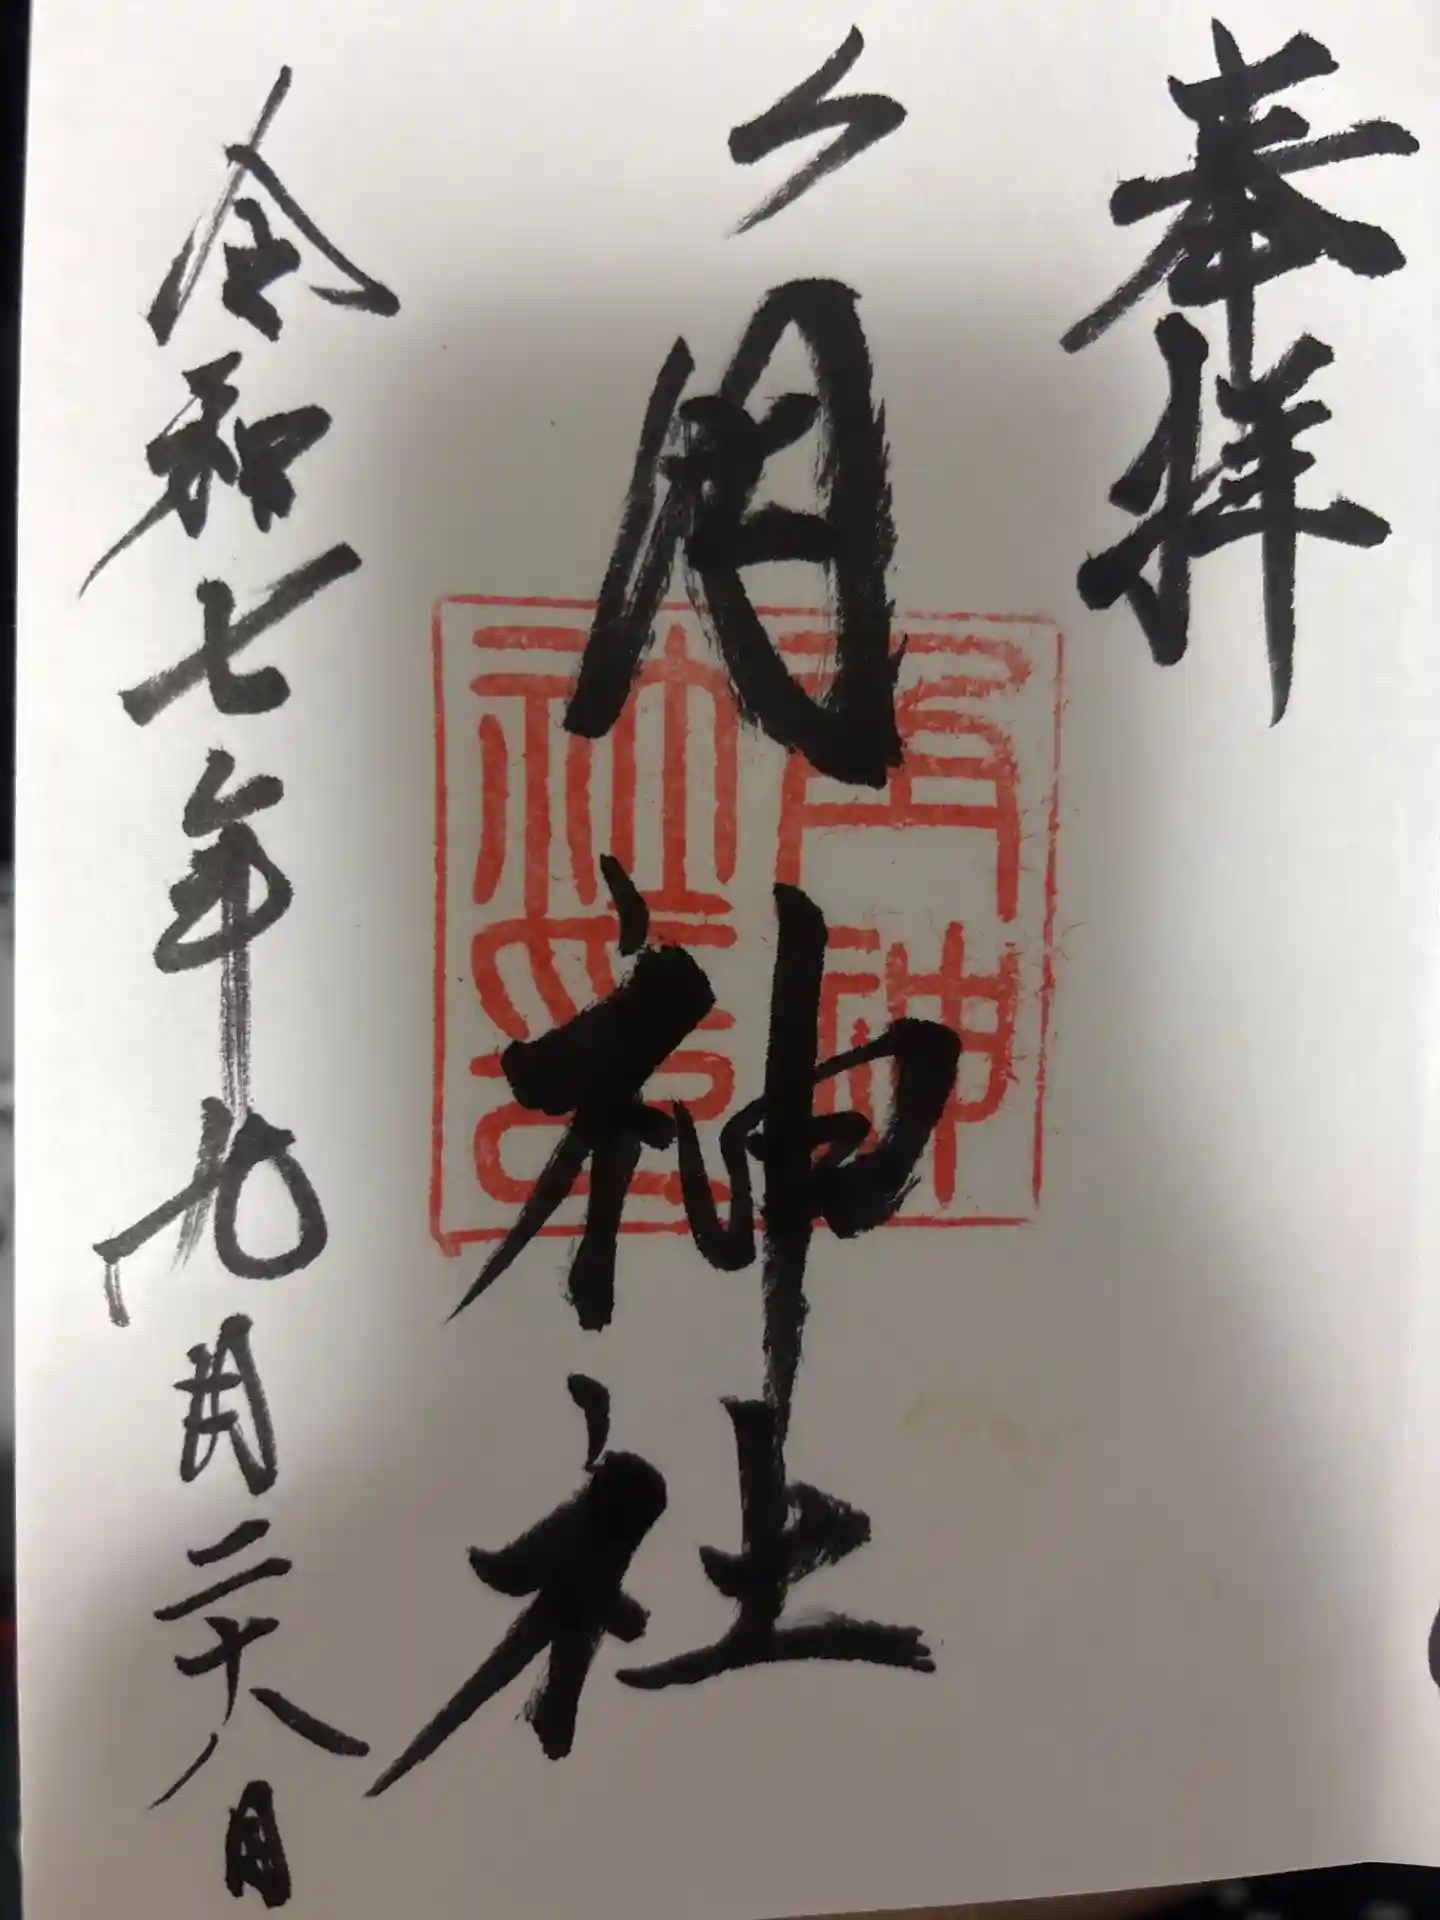 奉拝
角神社
角神
社印
令和七年九月二十八日